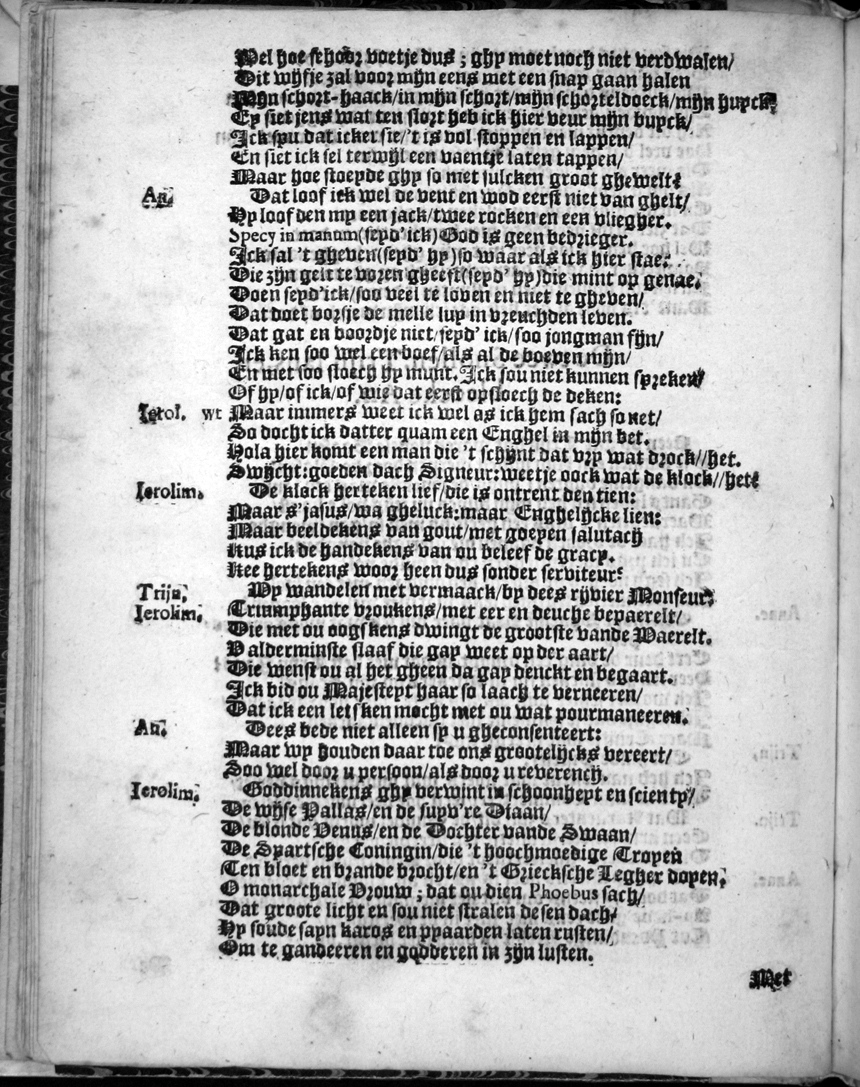 Wel hoe schoor voetje dus; ghy moet noch niet verdwalen/
Dit wijfje zal voor mijn eens met een snap gaan halen
Mijn schort-haack/in mijn schort/mijn schorteldoeck/mijn huyck,
Ey siet jens wat ten stort heb ick hier veur mijn buyck/
Ick spu dat icker sie/'t is vol stoppen en lappen/
En siet ick sel terwijl een vaentje laten tappen/
Maar hoe stoeyde ghy so met sulcken groot ghewelt?
An. Dat loof ick wel de vent en wod eerst niet van ghelt/
Hy loofden my een jack/twee rocken en een vliegher.
Specy in manum(seyd' ick)God is geen bedrieger.
Ick sal 't gheven(seyd' hy)so waar als ick hier stae:
Die zijn gelt te voren gheeft(seyd' hy)die mint op genae.
Doen seyd'ick/soo veel te loven en niet te gheven/
Dat doet borsje de melle luy in vreuchden leven.
Dat gat en boordje niet/seyd' ick/soo jongman fijn/
Ick ken soo wel een boef/als al de boeven mijn/
En met soo sloech hy munt. Ick sou niet kunnen spreken/
Of hy/of ick/of wie dat eerst opsloech de deken:
Ierol. wt Maar immers weet ick wel as ick hem sach so net/
So docht ick datter quam een Enghel in mijn bet.
Hola hier komt een man die 't schijnt dat vry wat drock//het.
Swijcht:goeden dach Signeur:weetje oock wat de klock//het?
Ierolim. De klock herteken lief/die is ontrent den tien:
Maar s'jasus/wa gheluck:maar Enghelijcke lien:
Maar beeldekens van gout/met goeyen salutacy
Kus ick de handekens van ou beleefde gracy.
Kee hertekens woor heen dus sonder serviteur?
Trijn, Wy wandelen met vermaack/by dees rijvier Monseur.
Ierolim, Triumphante vroukens/met eer en deuche bepaerelt/
Die met ou oogskens dwingt de grootste vande Waerelt.
V alderminste slaaf die gay weet op der aart/
Die wenst ou al het gheen da gay denckt en begaart.
Ick bid ou Majesteyt haar so laach te verneeren/
Dat ick een letsken mocht met ou wat pourmaneeren.
An. Dees bede niet alleen sy u gheconsenteert:
Maar wy houden daar toe ons grootelijcks vereert/
Soo wel door u persoon/als door u reverency.
Ierolim. Goddinnekens ghy verwint in schoonheyt en scienty/
De wijse Pallas/en de suyv're Diaan/
De blonde Venus/en de Dochter vande Swaan/
De Spartsche Coningin/die 't hoochmoedige Troyen
Ten bloet en brande brocht/en 't Griecksche Legher doyen,
O monarchale Vrouw; dat ou dien Phoebus sach/
Dat groote licht en sou niet stralen desen dach/
Hy soude sayn karos en pyaarden laten rusten/
Om te gandeeren en godderen in zijn lusten.
Met